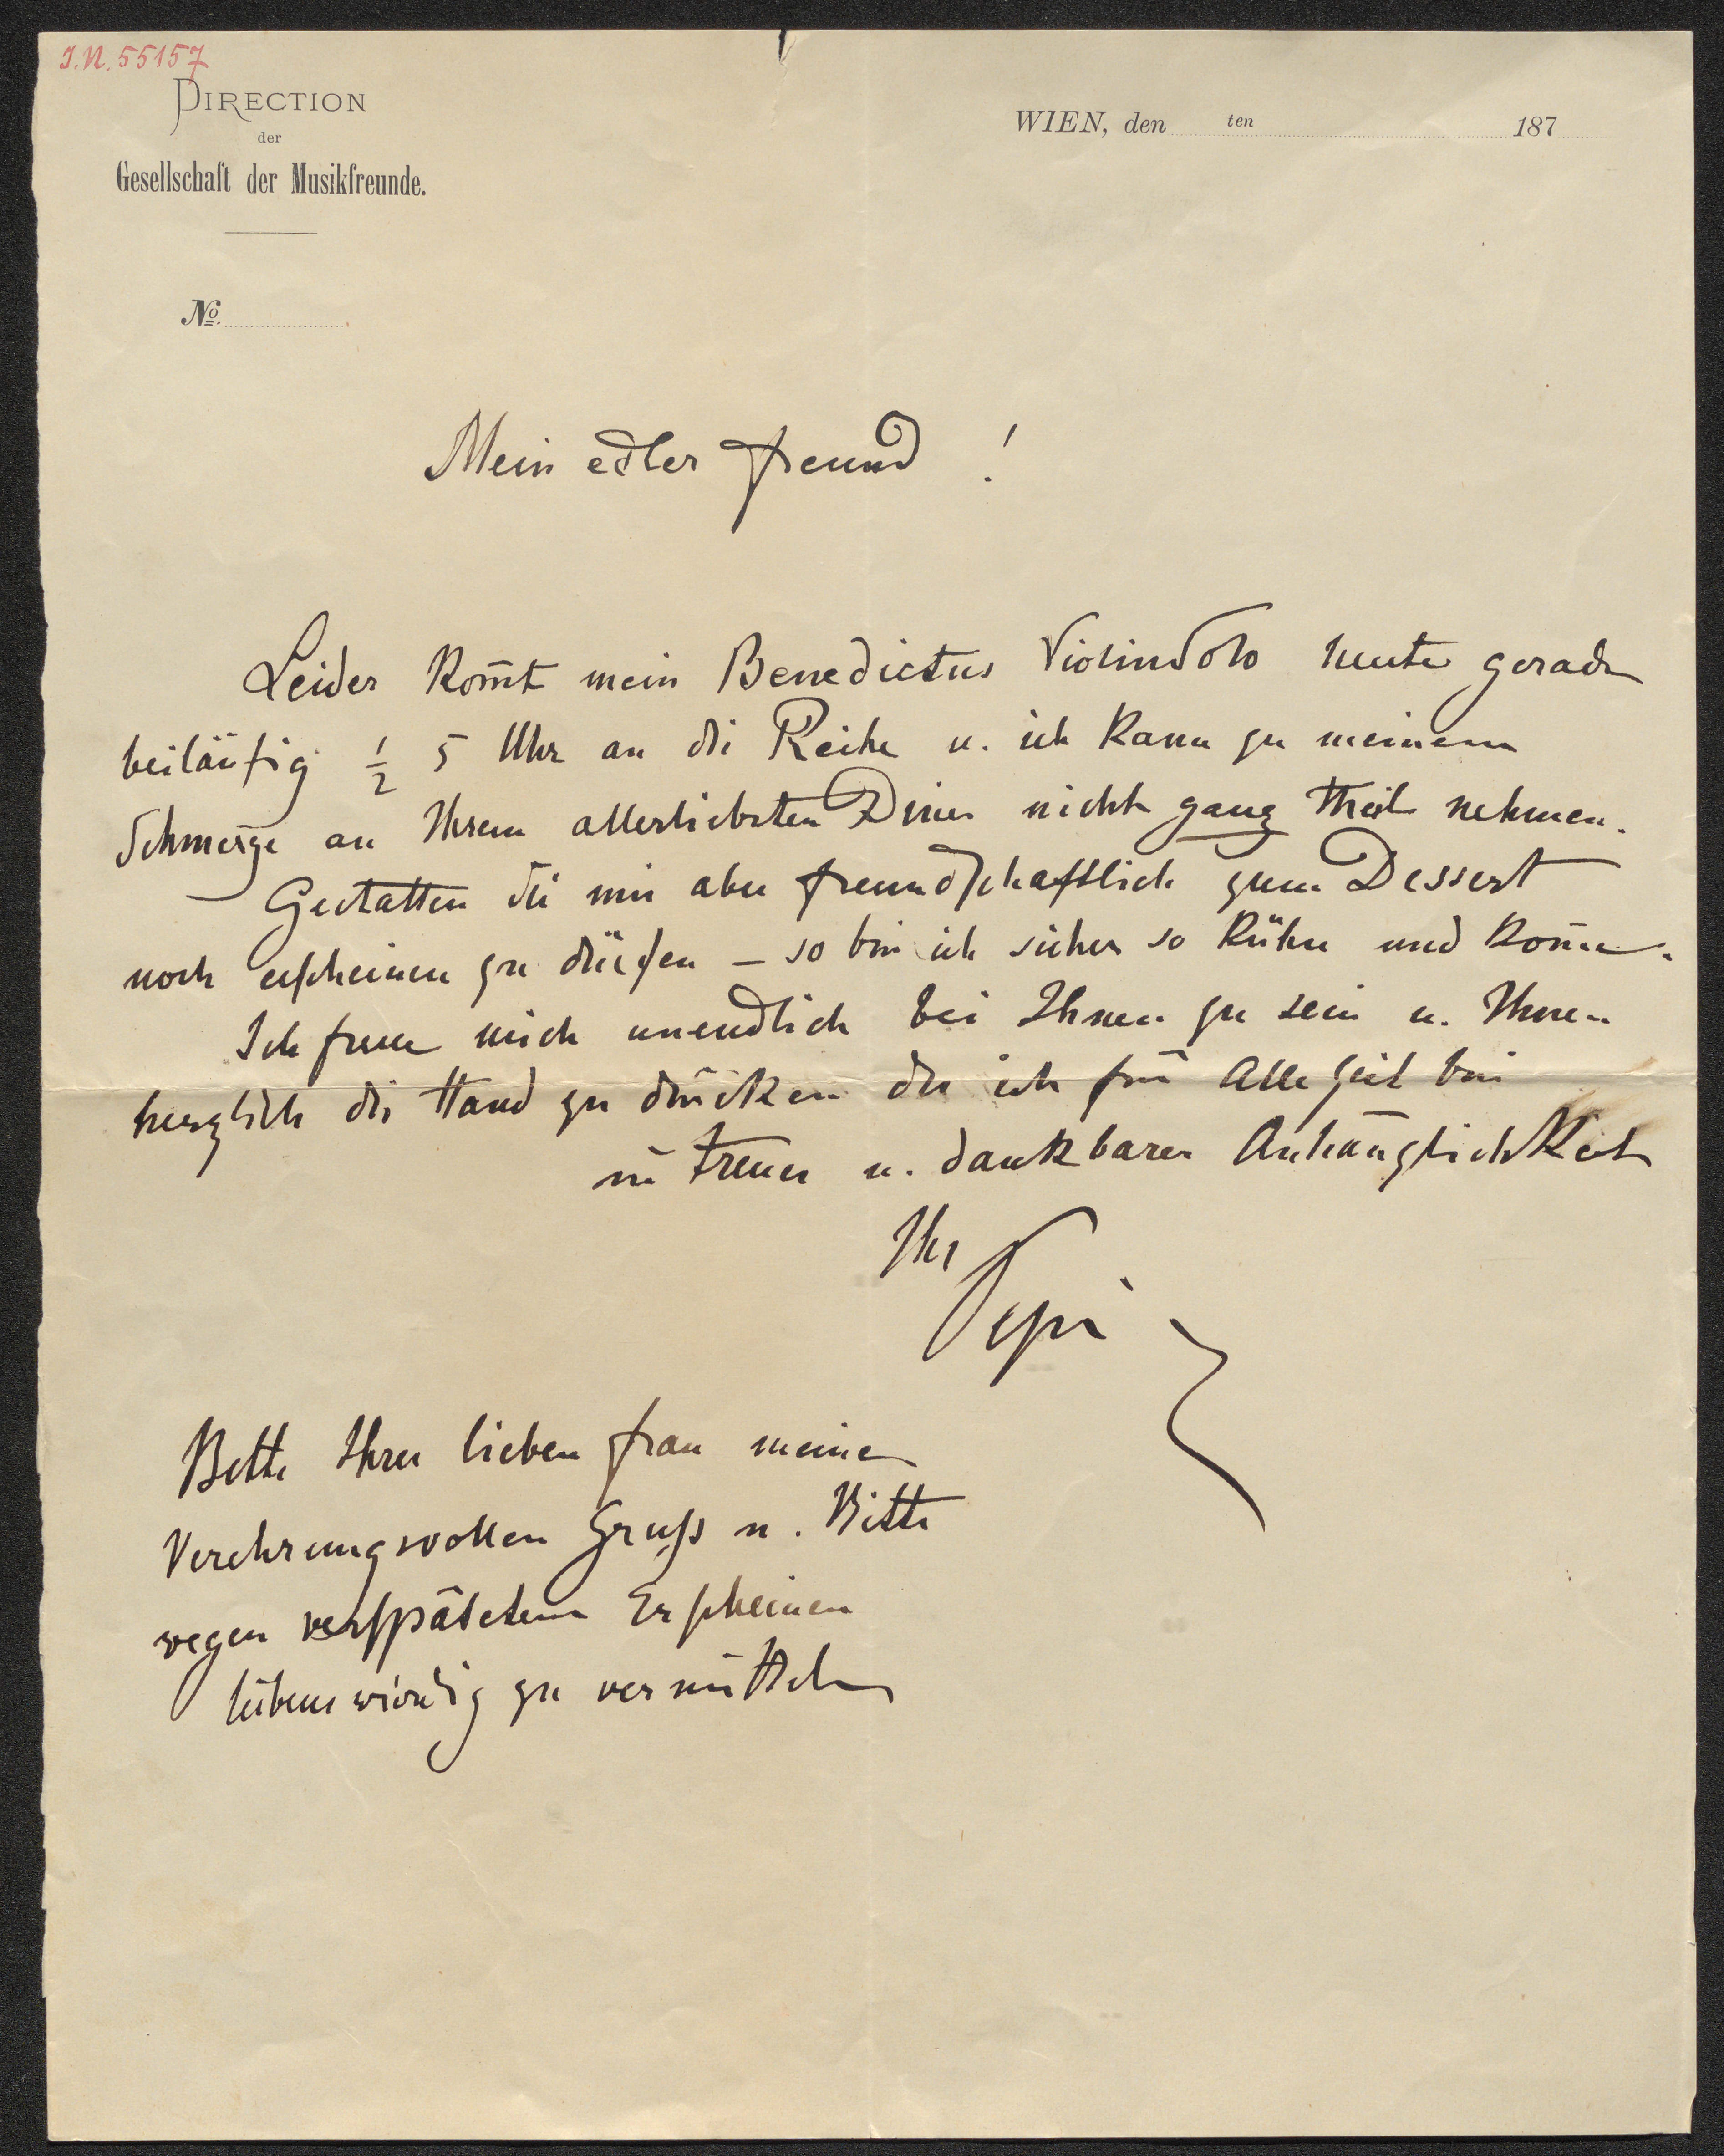 I.N. 55157
DIRECTION
der
Gesellschaft der Musikfreunde.
WIEN, den ten 187
No.
Mein edler Freund !
Leider kom̄t mein Benedictus Violinsolo heute gerade
beiläufig ½ 5 Uhr an die Reihe u. ich kann zu meinem
Schmerze an Ihrem allerliebsten Diner nicht ganz theil nehmen.
Gestatten Sie mir aber freundschaftlich zum Dessert
noch erscheinen zu dürfen – so bin ich sicher so kühn und kom̄e.
Ich freue mich unendlich bei Ihnen zu sein u. Ihnen
herzlich die Hand zu drücken der ich für alle Zeit bin
in treuer u. dankbarer Anhänglichkeit
Ihr
Pepi
Bitte Ihrer lieben Frau meinen
Verehrungsvollen Gruß u. Bitte
wegen verspätetem Erscheinen
liebenswürdig zu vermitteln